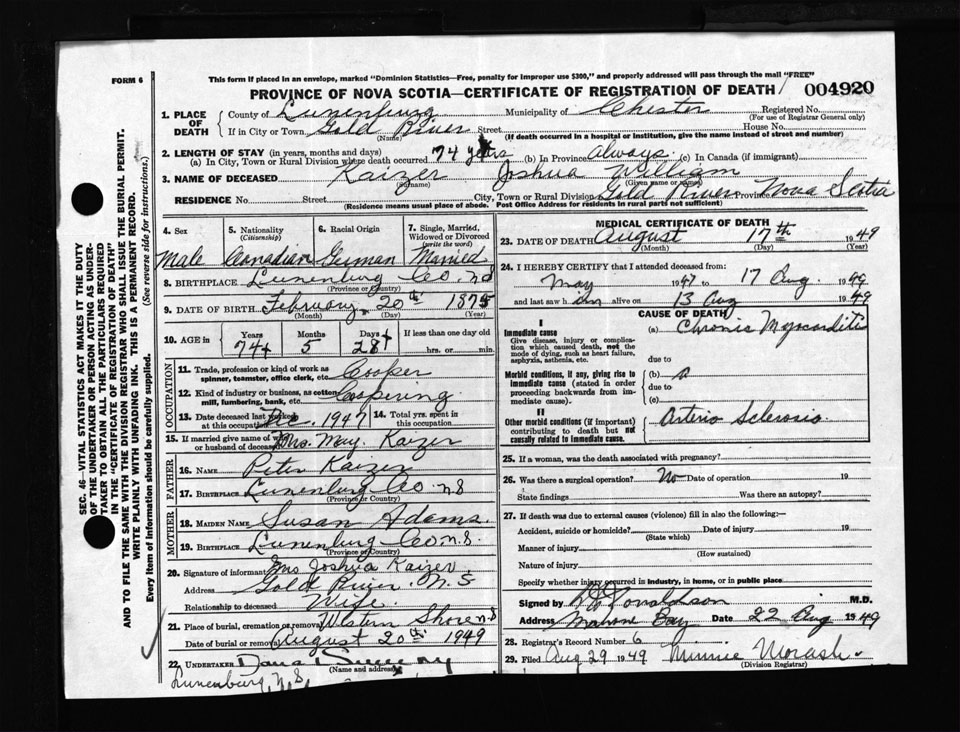 This form if placed in an envelope, marked "Dominion Statistics—Free, penalty for improper use $300," and properly addressed will pass through the mail "FREE"
FORM 6
PROVINCE OF NOVA SCOTIA—CERTIFICATE OF REGISTRATION OF DEATH
004920
SEC. 46—VITAL STATISTICS ACT MAKES IT THE DUTY
OF THE UNDERTAKER OR PERSON ACTING AS UNDER-
TAKER TO OBTAIN ALL THE PARTICULARS REQUIRED
IN THE "CERTIFICATE OF REGISTRATION OF DEATH"
AND TO FILE THE SAME WITH THE DIVISION REGISTRAR WHO SHALL ISSUE THE BURIAL PERMIT.
WRITE PLAINLY WITH UNFADING INK. THIS IS A PERMANENT RECORD.
Every item of Information should be carefully supplied. (See reverse side for instructions.)
1. PLACE OF DEATH County of Lunenburg Municipality of Chester Registered No.
(For use of Registrar General only)
If in City or Town Gold River Street House No.
(Name) (If death occurred in a hospital or institution, give the name instead of street and number)
2. LENGTH OF STAY (in years, months and days)
(a) In City, Town or Rural Division where death occurred 74 years (b) In Province Always (c) In Canada (if immigrant)
3. NAME OF DECEASED Kaizer Joshua William
(Surname) (Given name or names)
RESIDENCE No. Street City, Town or Rural Division Gold River Province Nova Scotia
(Residence means usual place of abode. Post Office Address for residents in rural parts not sufficient)
4. Sex 5. Nationality (Citizenship) 6. Racial Origin 7. Single, Married, Widowed or Divorced (write the word)
Male Canadian German Married
8. BIRTHPLACE Lunenburg Co. N.S
(Province or Country)
9. DATE OF BIRTH February 20th 1875
(Month) (Day) (Year)
10. AGE in Years Months Days If less than one day old
74 5 28 hrs. or min.
OCCUPATION
11. Trade, profession or kind of work as spinner, teamster, office clerk, etc. Cooper
12. Kind of industry or business, as cotton mill, lumbering, bank, etc. Coopering
13. Date deceased last worked at this occupation Dec. 1947 14. Total yrs. spent in this occupation
15. If married give name of wife or husband of deceased Mrs. May Kaizer
FATHER
16. NAME Peter Kaizer
17. BIRTHPLACE Lunenburg Co N.S
(Province or Country)
MOTHER
18. MAIDEN NAME Susan Adams.
19. BIRTHPLACE Lunenburg Co N.S.
(Province or Country)
20. Signature of informant Mrs Joshua Kaizer
Address Gold River. N.S
Relationship to deceased Wife.
21. Place of burial, cremation or removal Western Shore N.S
Date of burial or removal August 20th 1949
22. UNDERTAKER
(Name and address)
Lunenburg N.S
MEDICAL CERTIFICATE OF DEATH
23. DATE OF DEATH August 17th 1949
(Month) (Day) (Year)
24. I HEREBY CERTIFY that I attended deceased from:
May 1947 to 17 Aug. 1949
and last saw him alive on 13 Aug 1949
CAUSE OF DEATH
I
Immediate cause (a) Chronic Myocarditis
Give disease, injury or complication which caused death, not the mode of dying, such as heart failure, asphyxia, asthenia, etc.
due to
Morbid conditions, if any, giving rise to immediate cause (stated in order proceeding backwards from immediate cause).
(b)
due to
(c)
II
Other morbid conditions (if important) contributing to death but not causally related to immediate cause. Arterio Sclerosis.
25. If a woman, was the death associated with pregnancy?
26. Was there a surgical operation? No Date of operation 19
State findings Was there an autopsy?
27. If death was due to external causes (violence) fill in also the following:—
Accident, suicide or homicide? Date of injury 19
(State which)
Manner of injury
(How sustained)
Nature of injury
Specify whether injury occurred in industry, in home, or in public place
Signed by Donaldson M.D.
Address Mahone Bay Date 22 Aug 1949
28. Registrar's Record Number 6
29. Filed Aug 29 1949 Minnie Morash
(Division Registrar)